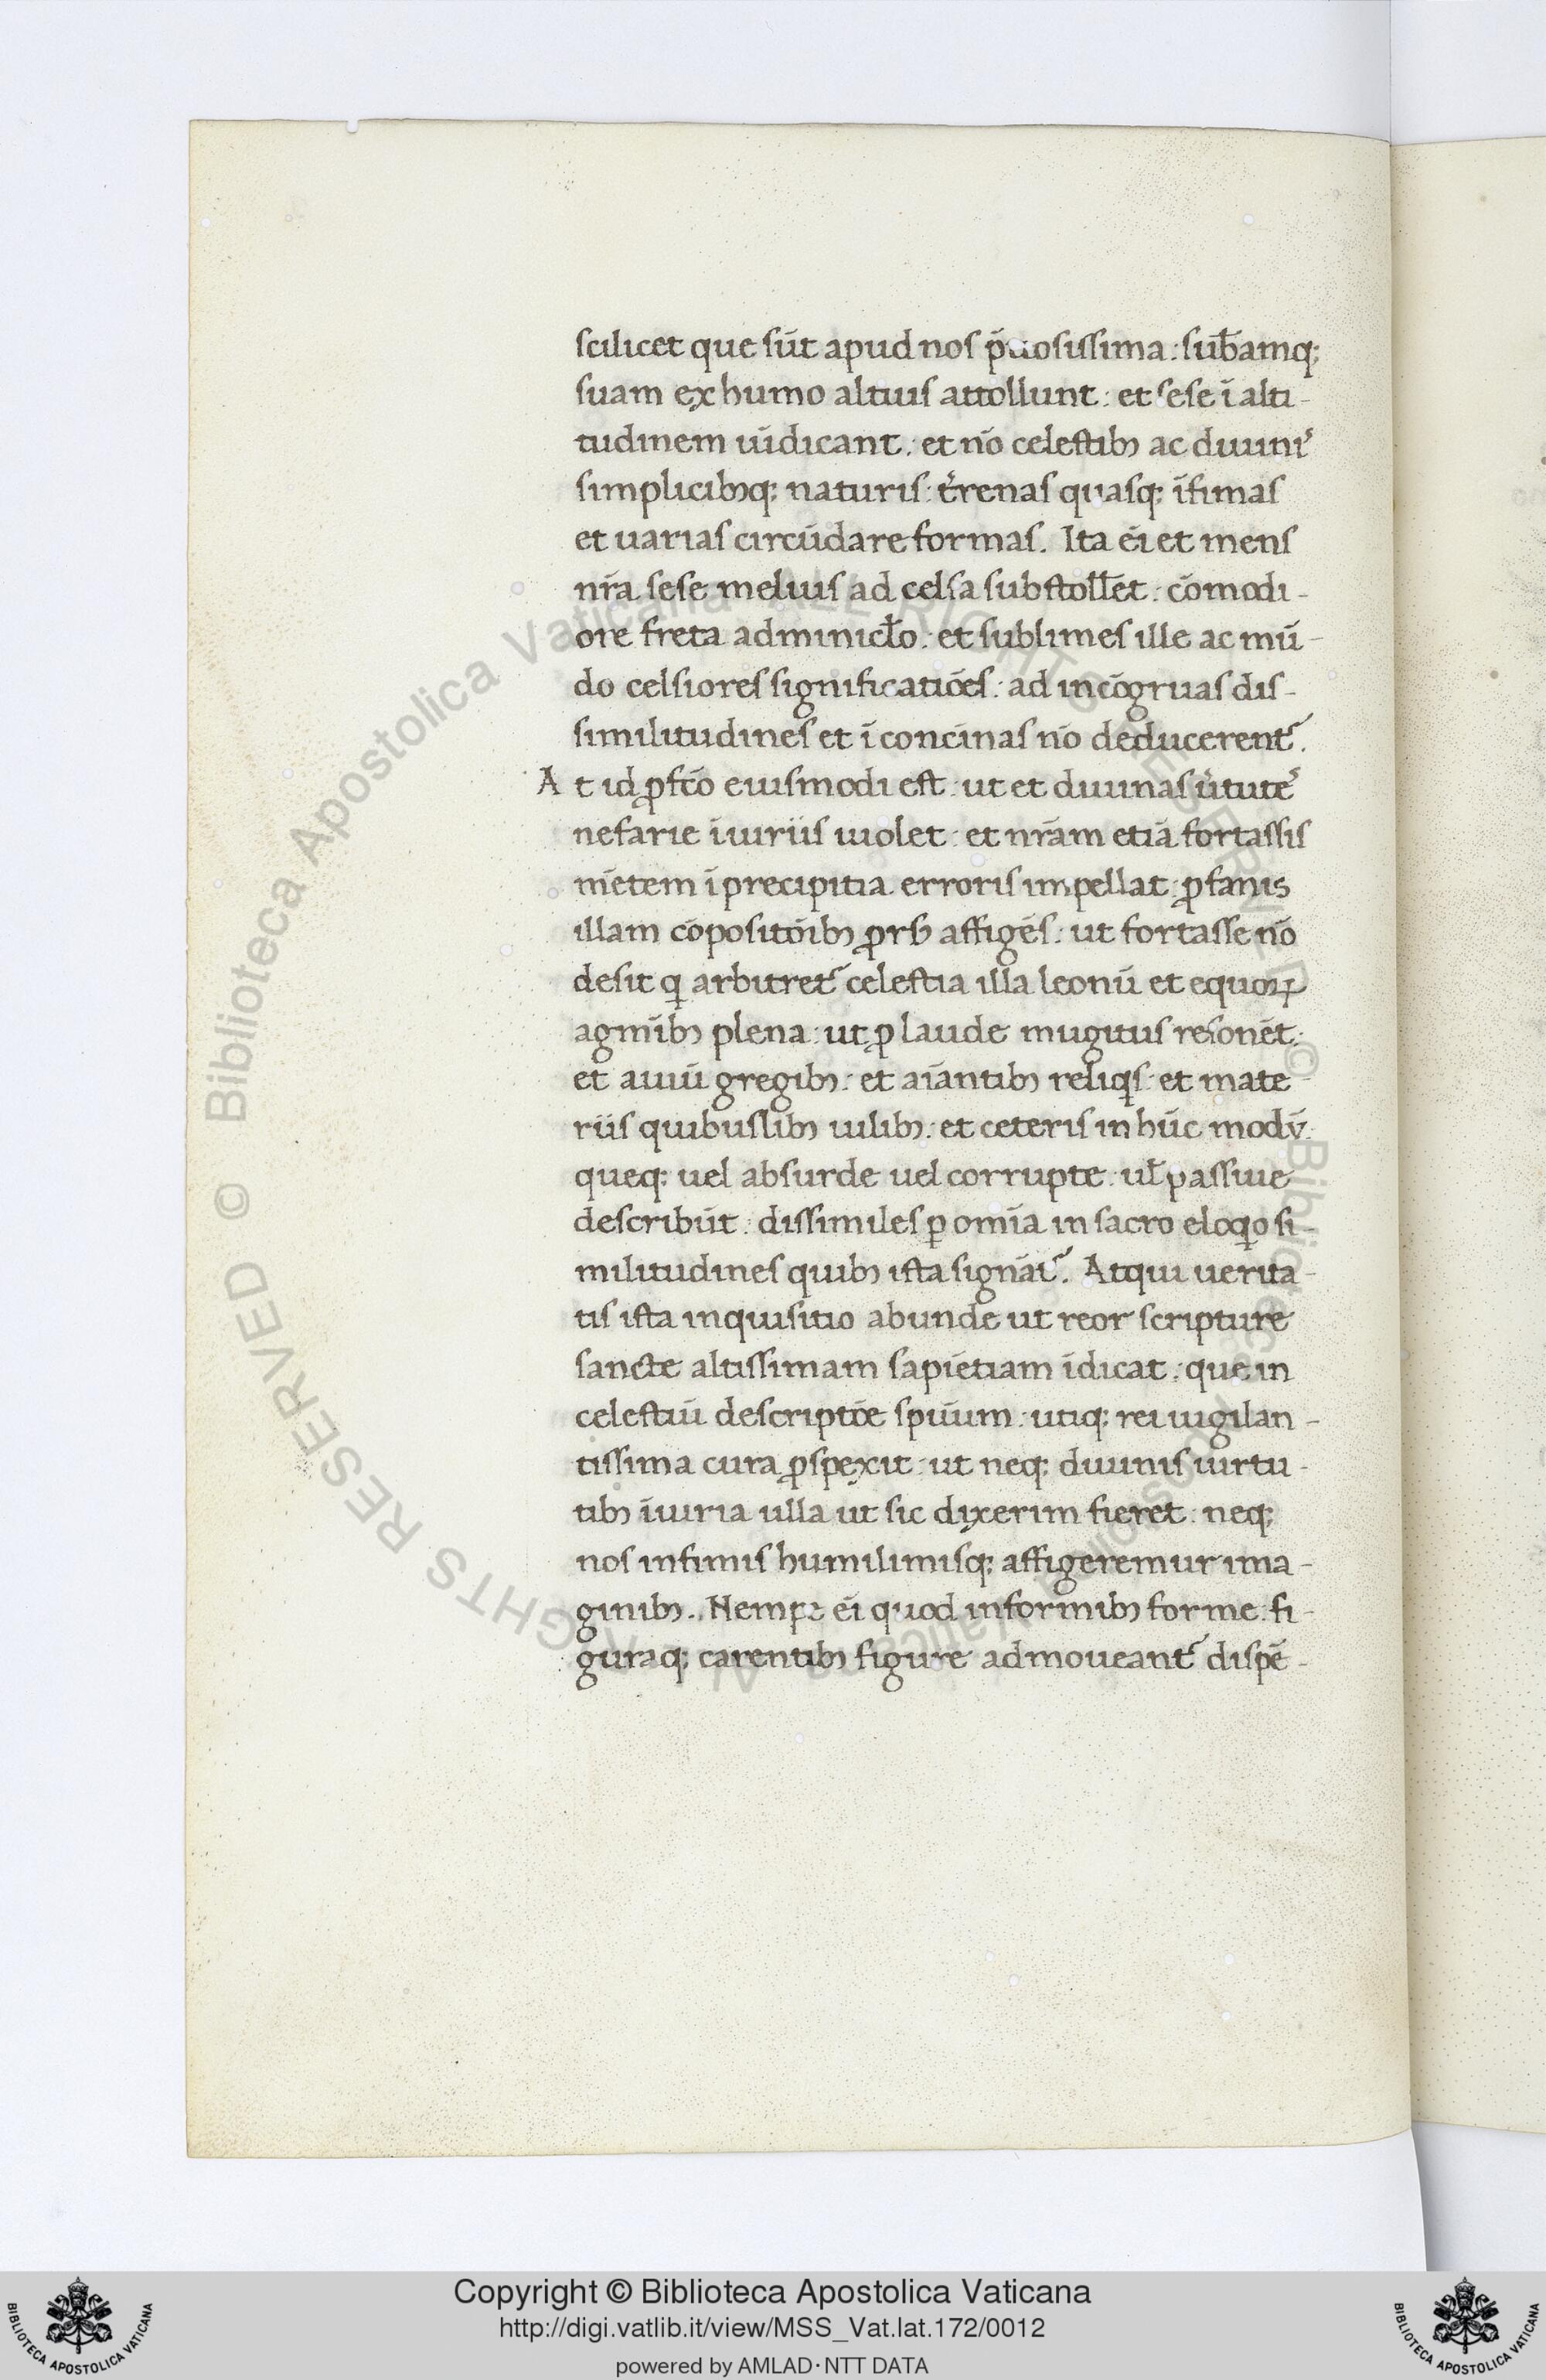 scilicet que sūt apud nos p̄tiosissima: sub̄amq;
suam ex humo altius attollunt: et sese ī alti-
tudinem uīdicant: et nō celestibꝫ ac diuinis
simplicibꝫq; naturis: t̄renas quasq; īfimas
et uarias circūdare formas. Ita ēi et mens
nr̄a sese melius ad celsa substoll̄et: cōmodi-
ore freta adminicl̄o: et sublimes ille ac mū-
do celsiores significatiōes: ad incōgruas dis-
similitudines et īconcīnas nō deducerent᷑.
At id ꝓfcō eiusmodi est: ut et diuinas ùtutes
nefarie īiuriis uiolet: et nr̄am etiā fortassis
mētem ī precipitia erroris impellat: ꝓfanis
illam cōpositōibꝫ ꝓrsꝰ affigēs: ut fortasse nō
desit qͥ arbitret᷑ celestia illa leonū et equoꝝ
agmībꝫ plena: ut ꝓ laude mugitus resonēt:
et auiū gregibꝫ: et aīantibꝫ reliqͥs: et mate-
riis quibuslibꝫ uilibꝫ: et ceteris in hūc modū
queq; uel absurde uel corrupte: ul̄ passiue
describūt: dissimiles ꝑ omīa in sacro eloqͥo si-
militudines quibꝫ ista signāt᷑. Atqui uerita-
tis ista inquisitio abunde ut reor scripture
sancte altissimam sapiētiam īdicat: que in
celestiū descriptiōe spūum: utiq; rei uigilan-
tissima cura ꝓspexit: ut neq; diuinis uirtu-
tibꝫ īiuria ulla ut sic dixerim fieret: neq;
nos infimis humilimisq; affigeremur ima-
ginibꝫ. Nempe ēi quod informibꝫ forme: fi-
guraq; carentibꝫ figure admoueant᷑ dispē-
© Biblioteca Apostolica Vaticana ALL RIGHTS RESERVED
Copyright © Biblioteca Apostolica Vaticana
http://digi.vatlib.it/view/MSS_Vat.lat.172/0012
powered by AMLAD·NTT DATA
BIBLIOTECA APOSTOLICA VATICANA
BIBLIOTECA APOSTOLICA VATICANA